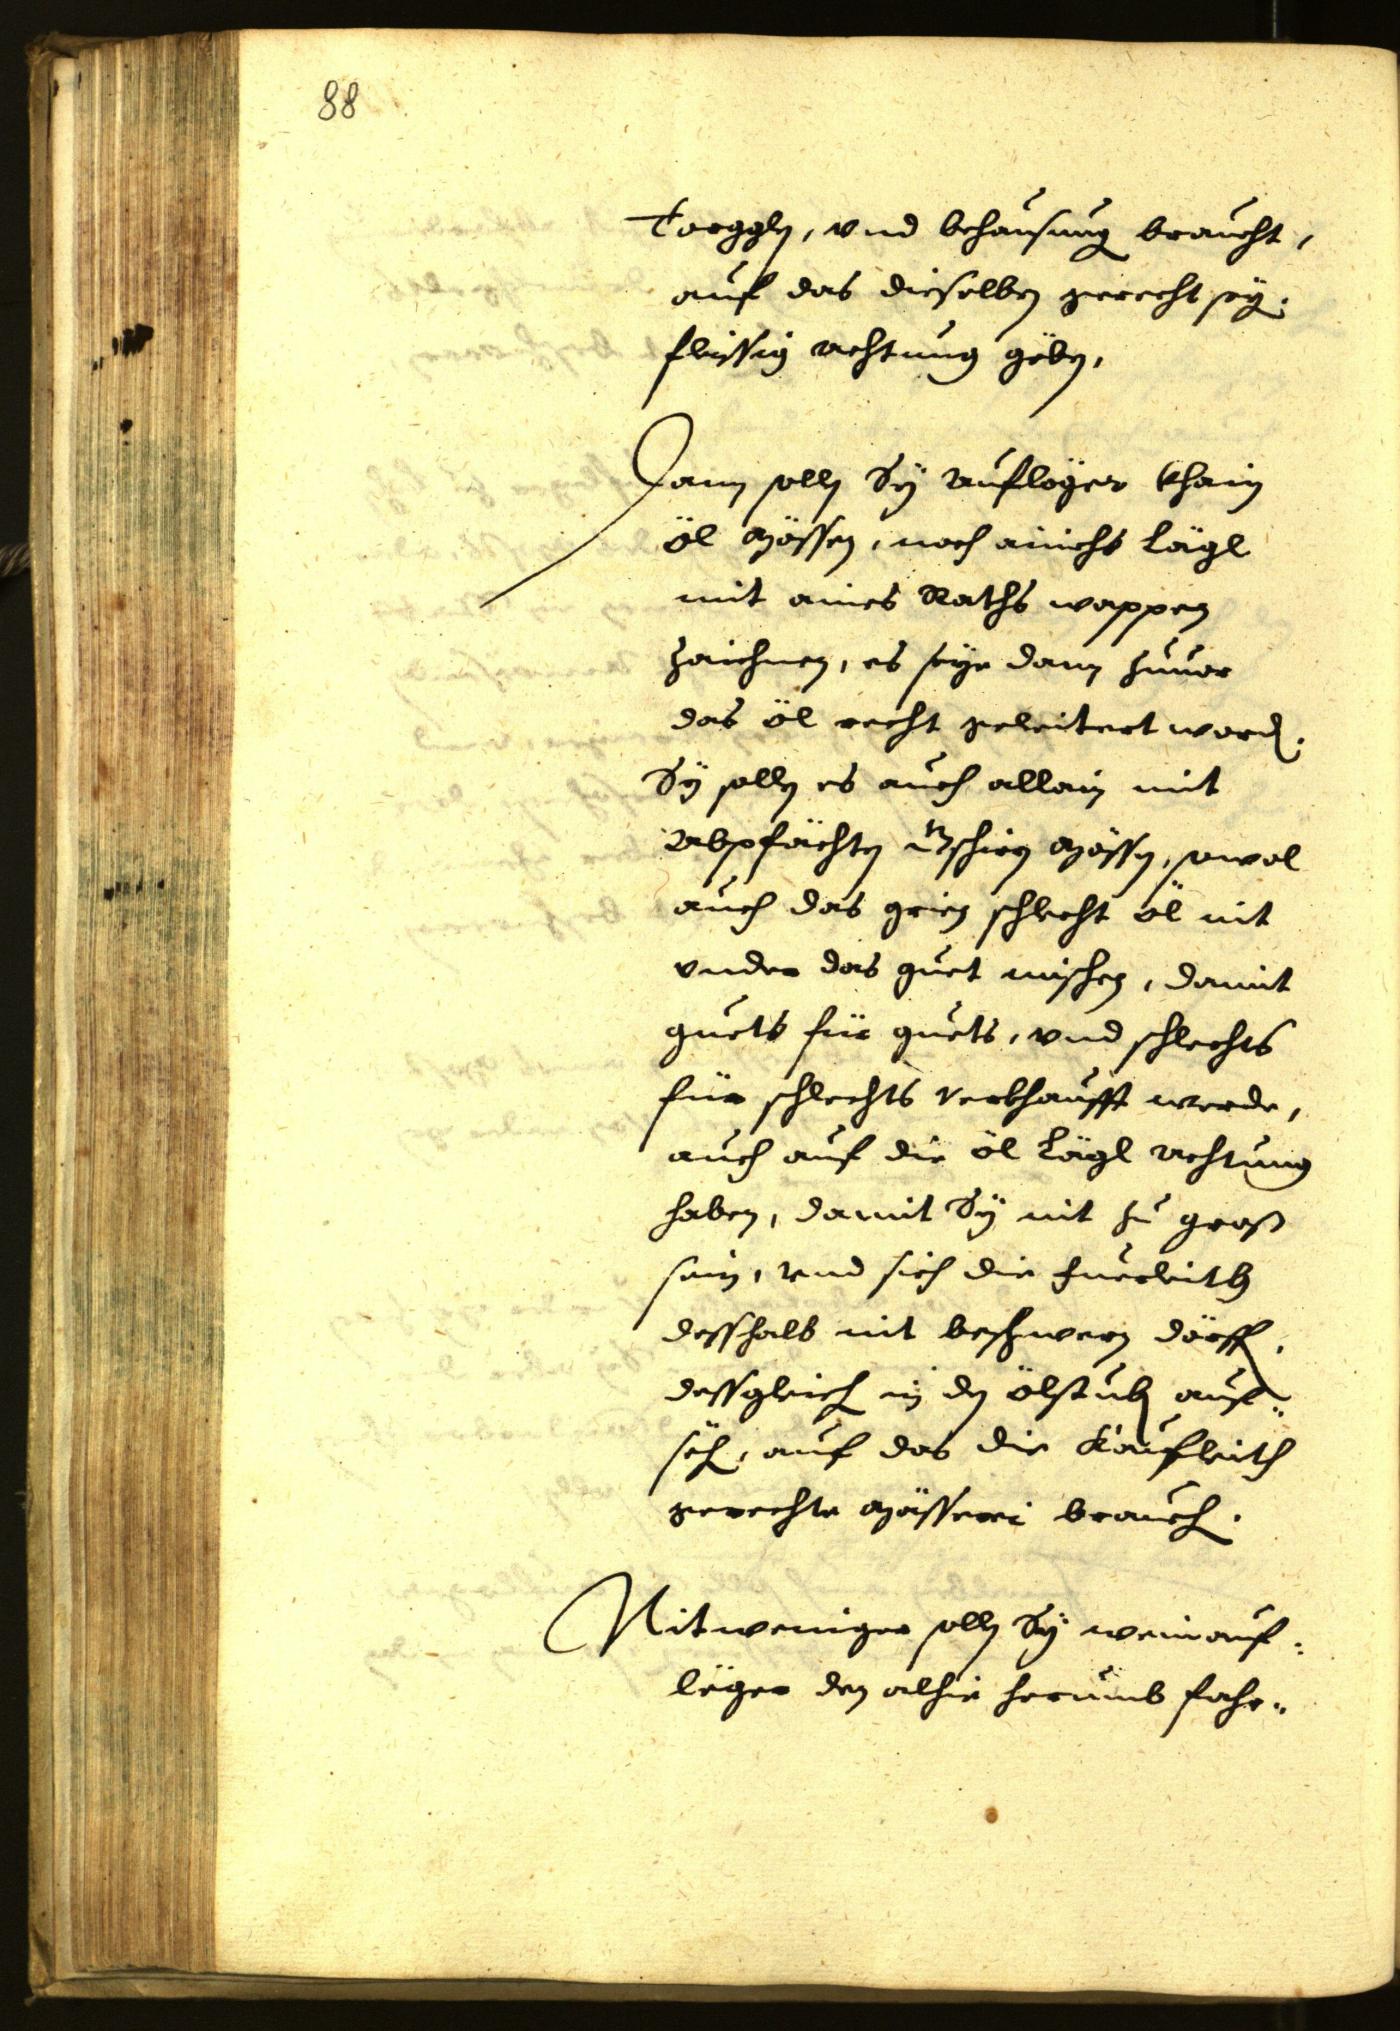 88
Torggln, vnd behausung braucht,
auf das dieselben gerecht sey,
fleissig achtung geben,
Dann solln Sy Aufleger khain
öl mössen, noch ainichs Lägl
mit aines Raths wappen
zaichnen, es seye dann zuuor
das öl recht geleitert word.
Sy solln es auch allain mit
abpfächten Vschirn mössn, sowol
auch das grien schlecht öl nit
vnder das guet mischen, damit
guets für guets, vnd schlechts
für schlechts verkhaufft werde,
auch auf die öl Lägl achtung
haben, damit Sy nit zu gross
sein, vnd sich die fuerleith
desshalb nit beschwern dörff,
dessgleich in dn ölstub auf-
seh, auf das die Kaufleith
gerechte mösserei brauch.
Nit weniger solln Sy weinauf-
leger den alhie herumb fahr-